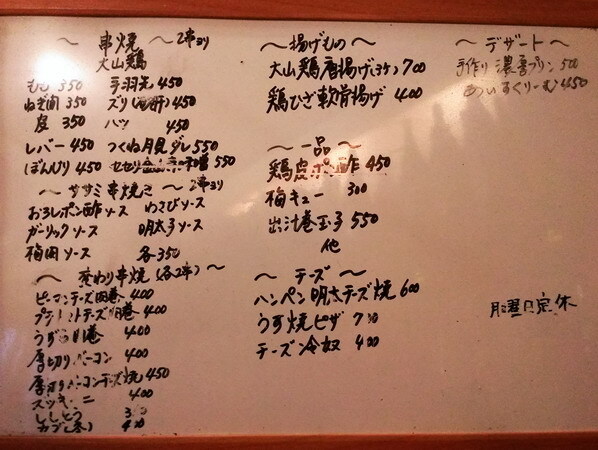 ～ 串焼 ～ 2串ヨリ
大山鶏
もも 350 手羽先 450
ねぎ間 350 ズリ(砂肝) 450
皮 350 ハツ 450
レバー 450 つくね月見ダレ 550
ぼんじり 450 セセリ 味噌 550
～ ササミ串焼き ～ 2串ヨリ
おろしポン酢ソース わさびソース
ガーリックソース 明太子ソース
梅肉ソース 各350
～ 変わり串焼 (各2串) ～
ピーマンチーズ肉巻 400
チーズ肉巻 400
うずら 巻 400
厚切りベーコン 400
厚切りベーコンチーズ焼 450
ズッキーニ 400
ししとう
カブ(冬) 400
～ 揚げもの ～
大山鶏唐揚げ(3ケ) 700
鶏ひざ軟骨揚げ 400
～ 一品 ～
鶏皮ポン酢 450
梅キュー 300
出汁巻玉子 550
他
～ チーズ ～
ハンペン明太チーズ焼 600
うす焼ピザ 700
チーズ冷奴 400
～ デザート ～
手作り濃厚プリン 500
あいすくりーむ 450
月曜日定休